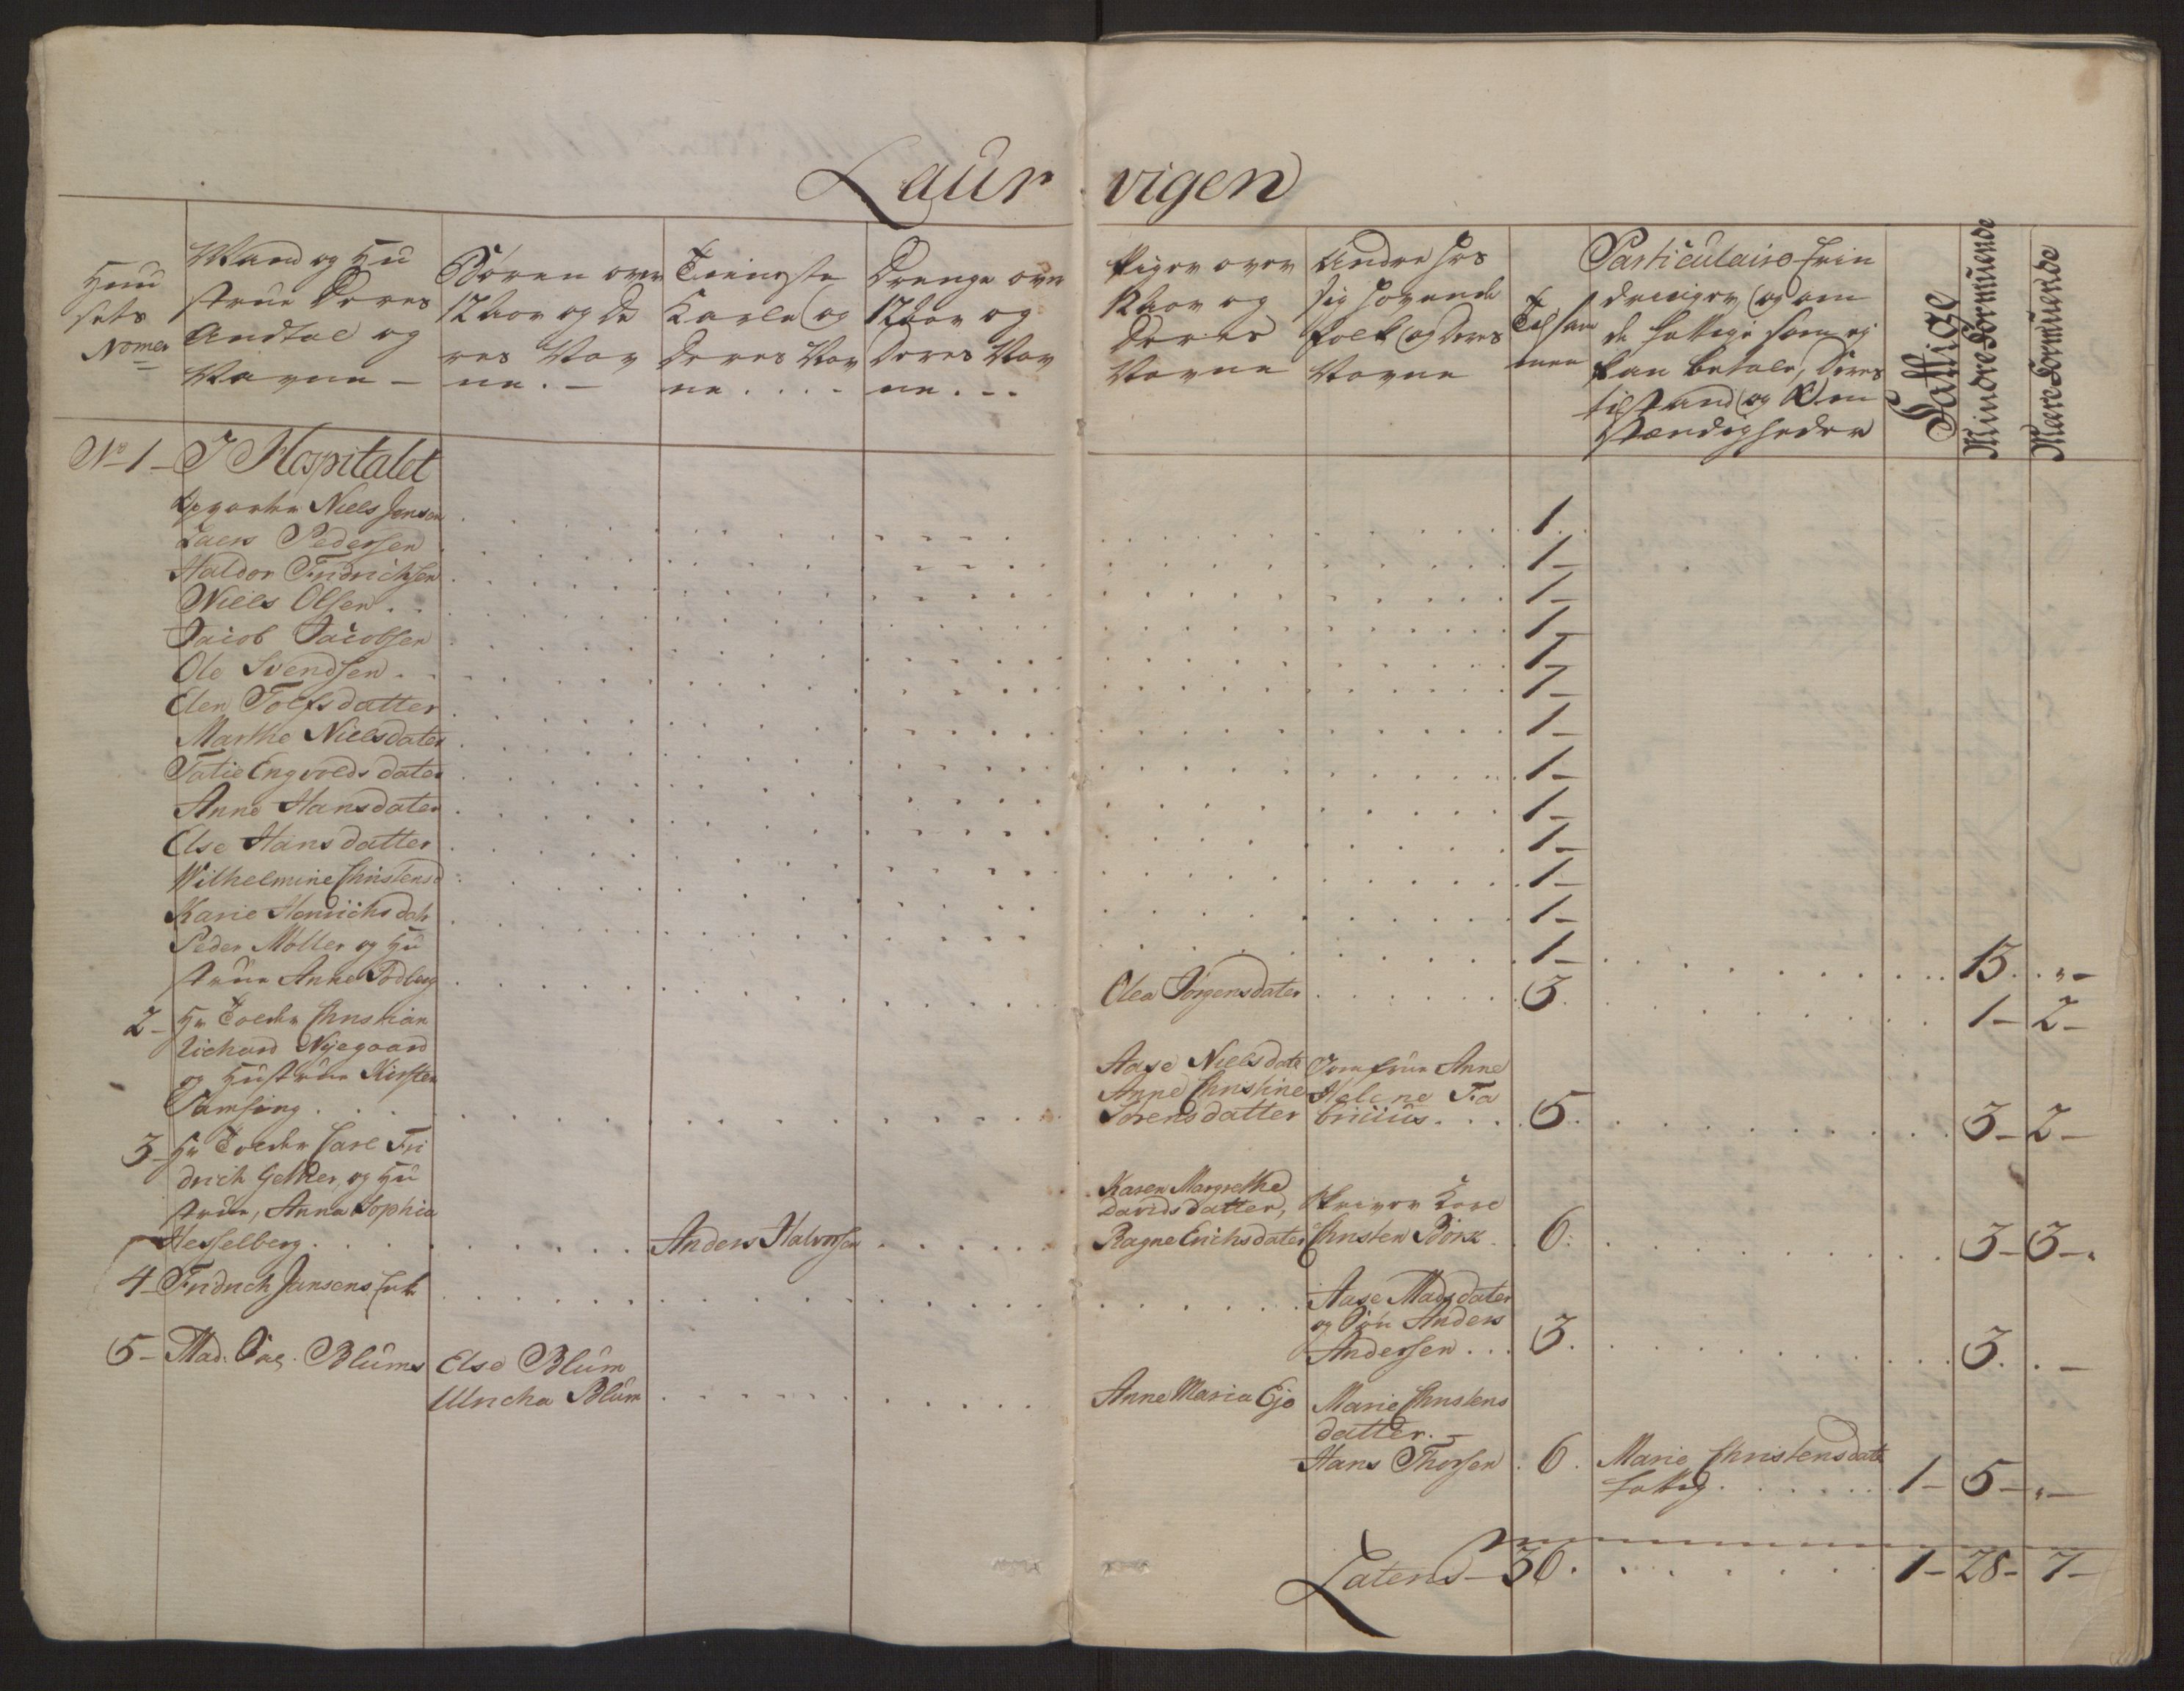 Laur vigen
Huu
sets
Nomer
Mand og Hu
strue Deres
Andtal og
Navne -
Børen over
12 Aar og De
res Nav
ne. -
Tieneste
Karle og
Deres Nav
ne . . . -
Drenge over
12 Aar og
Deres Nav
ne. - -
Piger over
12 Aar og
Deres
Navne
Andre hos
sig havende
folk og Deres
Navne
Til sam
men
Particulaire Erin
dringer, og om
de fattige som ej
kan betale, Deres
tilstand og Om
stændigheder
Fattige
Mindre Formuende
Meere Formuende
No 1 - I Hospitalet
Niels Jensen 1
Laers Pedersen 1 -
Haldor Fridrichsen 1 -
Niels Olsen . . 1 -
Jacob Jacobsen 1 -
Ole Svendsen . . 1 -
Elen Tolfsdatter 1 -
Marthe Nielsdater 1 -
Tatie Engvolds dater 1 -
Anne Hansdater 1 -
Else Hansdatter 1 -
Wilhelmine Christensd 1 -
Karie Henrichs datr 1 - 13. . " -
Peder Møller og Hu
strue Anne Podberg Olea Jørgensdater 3. 1 - 2 -
2 - Hr Toeder Christian
Richard Nyegaard
og Hustrue Kirsten
Tamsing . Aase Nielsdatr
Anne Christine
Sørensdatter
Jomfrue Anne
Helene Fa
bricius . . . 5. 3 - 2 -
3 - Hr Toeder Carl Fri
drich Gelker, og Hu
strue, Anna Sophia
Hesselberg . Anders Halvorsen
Karen Margrethe
Davids datter,
Ragne Erichsdater
Skriver Karl
Christen Börk . 6. 3 - 3 -
4 - Fridrich Jansens Enke
Aase Mads dater
og Søn Anders
Andersen . . . 3. 3. . -
5 - Mad. Sal. Blums
Else Blum
Uncha Blum
Anne Maria Ejo
Marie Christens
datter. -
Hans Thorsen . 6.
Marie Christensdatr
fattig . 1 - 5 - " -
Latens - 30. 1 - 28 - 7 -